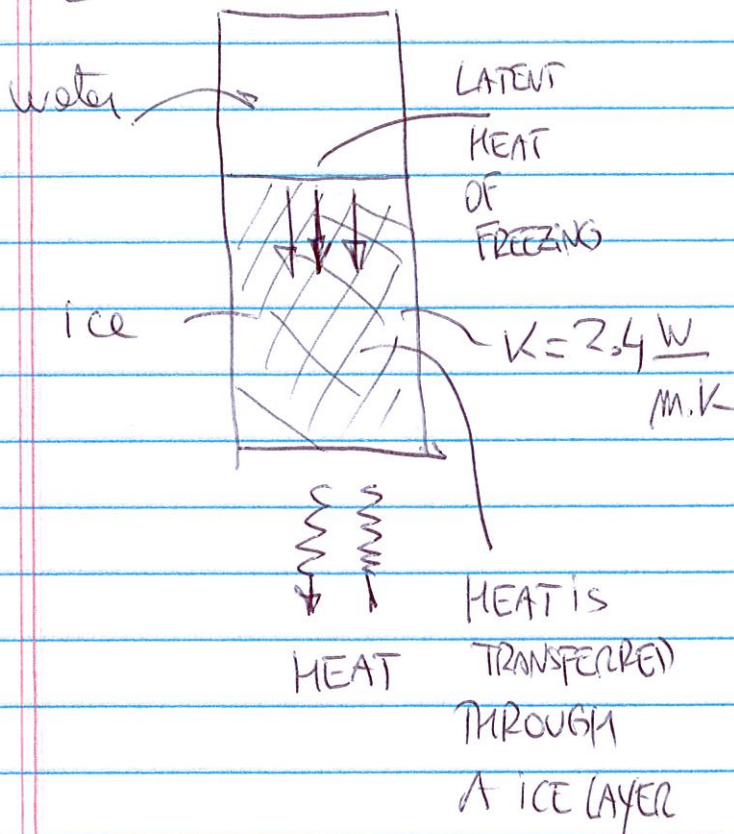 water
LATENT
HEAT
OF
FREEZING
ice
K=2.4 W
m.K
HEAT
HEAT iS
TRANSFERRED
THROUGH
A iCE LAYER